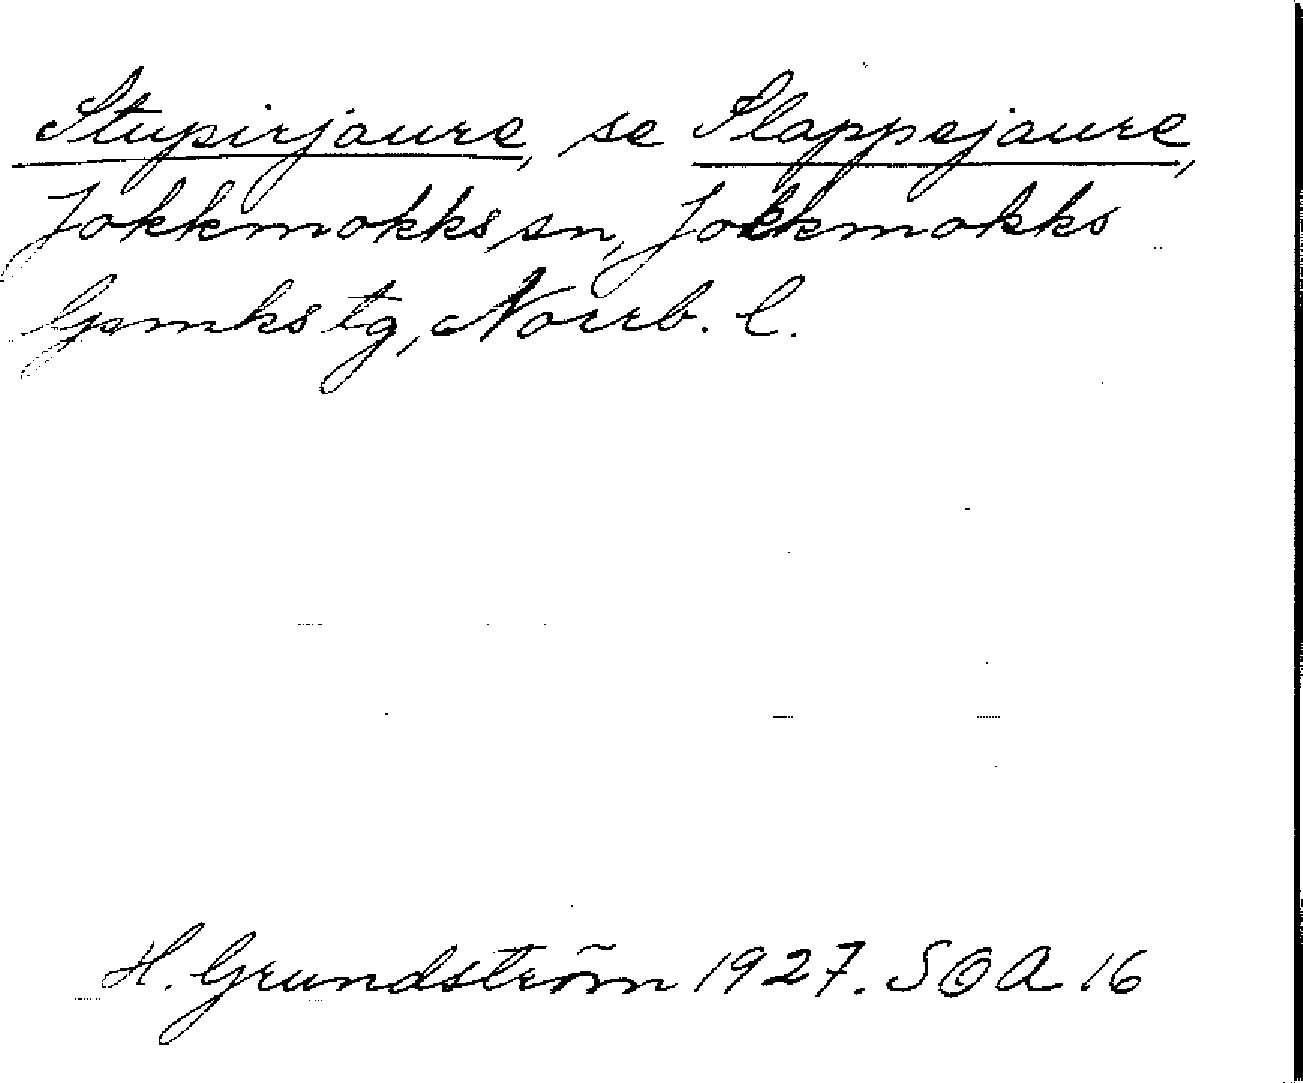 Stupirjaure, se Slappejaure,
Jokkmokks sn, Jokkmokks
lpmks tg, Norrb. l.
H. Grundström 1927. SOA 16